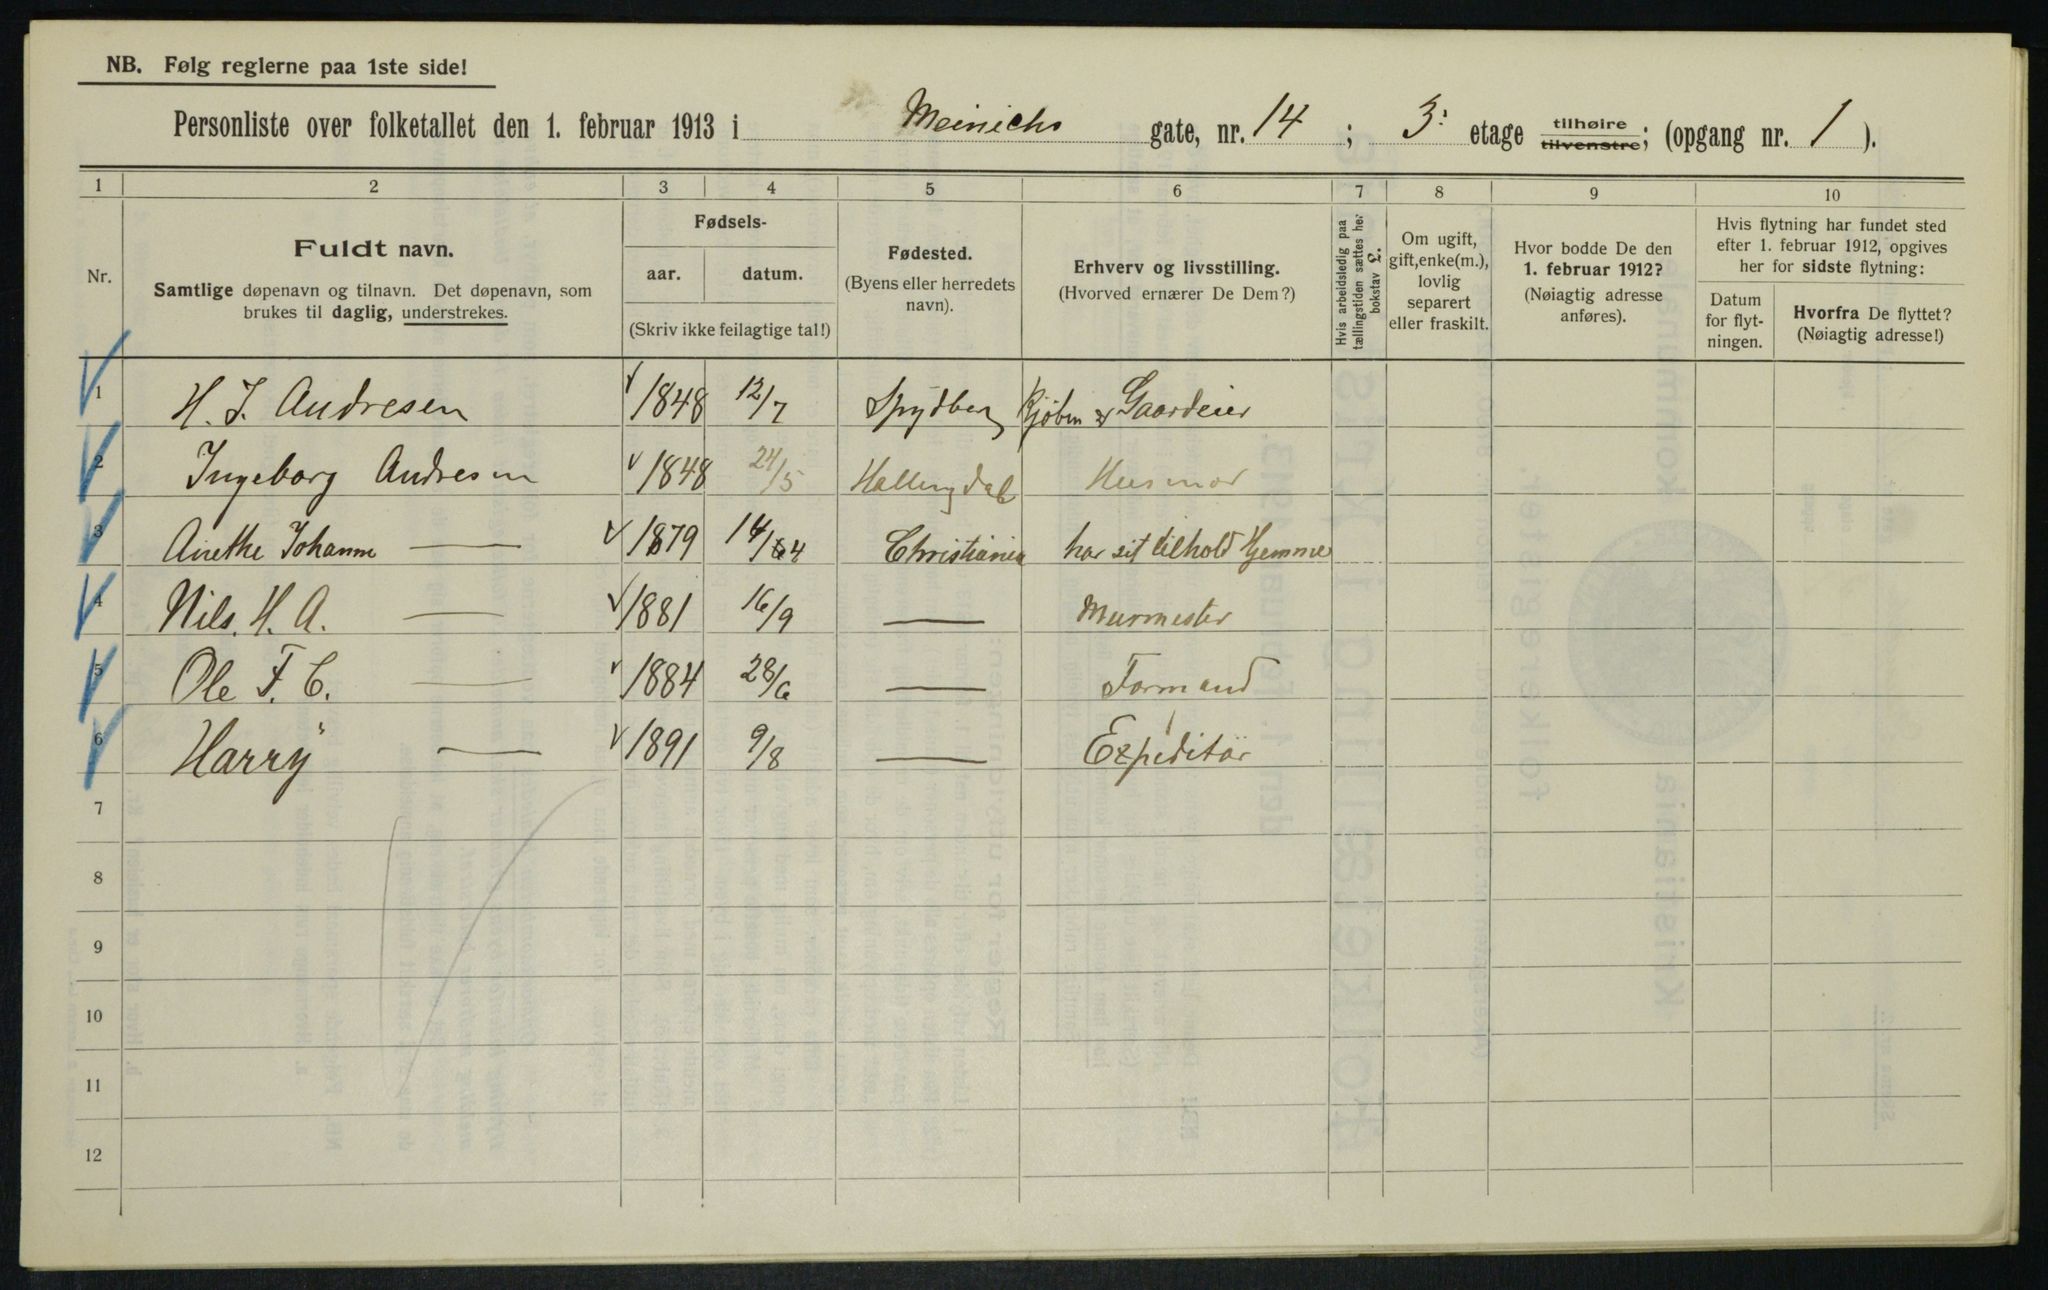 NB. Følg reglerne paa 1ste side!
Personliste over folketallet den 1. februar 1913 i Meinichs gate, nr. 14 ; 3: etage tilhøire tilvenstre; (opgang nr. 1 ).
1 2 3 4 5 6 7 8 9 10
Nr.
Fuldt navn.
Samtlige døpenavn og tilnavn. Det døpenavn, som
brukes til daglig, understrekes.
Fødsels-
aar. datum.
(Skriv ikke feilagtige tal!)
Fødested.
(Byens eller herredets
navn).
Erhverv og livsstilling.
(Hvorved ernærer De Dem?)
Hvis arbeidsledig paa
tællingstiden sættes her
bokstav L.
Om ugift,
gift, enke(m.),
lovlig
separert
eller fraskilt.
Hvor bodde De den
1. februar 1912?
(Nøiagtig adresse
anføres).
Hvis flytning har fundet sted
efter 1. februar 1912, opgives
her for sidste flytning:
Datum
for flyt-
ningen.
Hvorfra De flyttet?
(Nøiagtig adresse!)
1 H. J. Andresen 1848 12/7 Spydberg Kjøbm Gaardeier
2 Ingeborg Andresen 1848 24/5 Hallingdal Husmor
3 Anethe Johanne — 1879 14/4 Christiania har sit tilhold Hjemme
4 Nils. H. A. — 1881 16/9 — Murmester
5 Ole F. C. — 1884 28/6 — Formand
6 Harry — 1891 9/8 — Expeditør
7
8
9
10
11
12